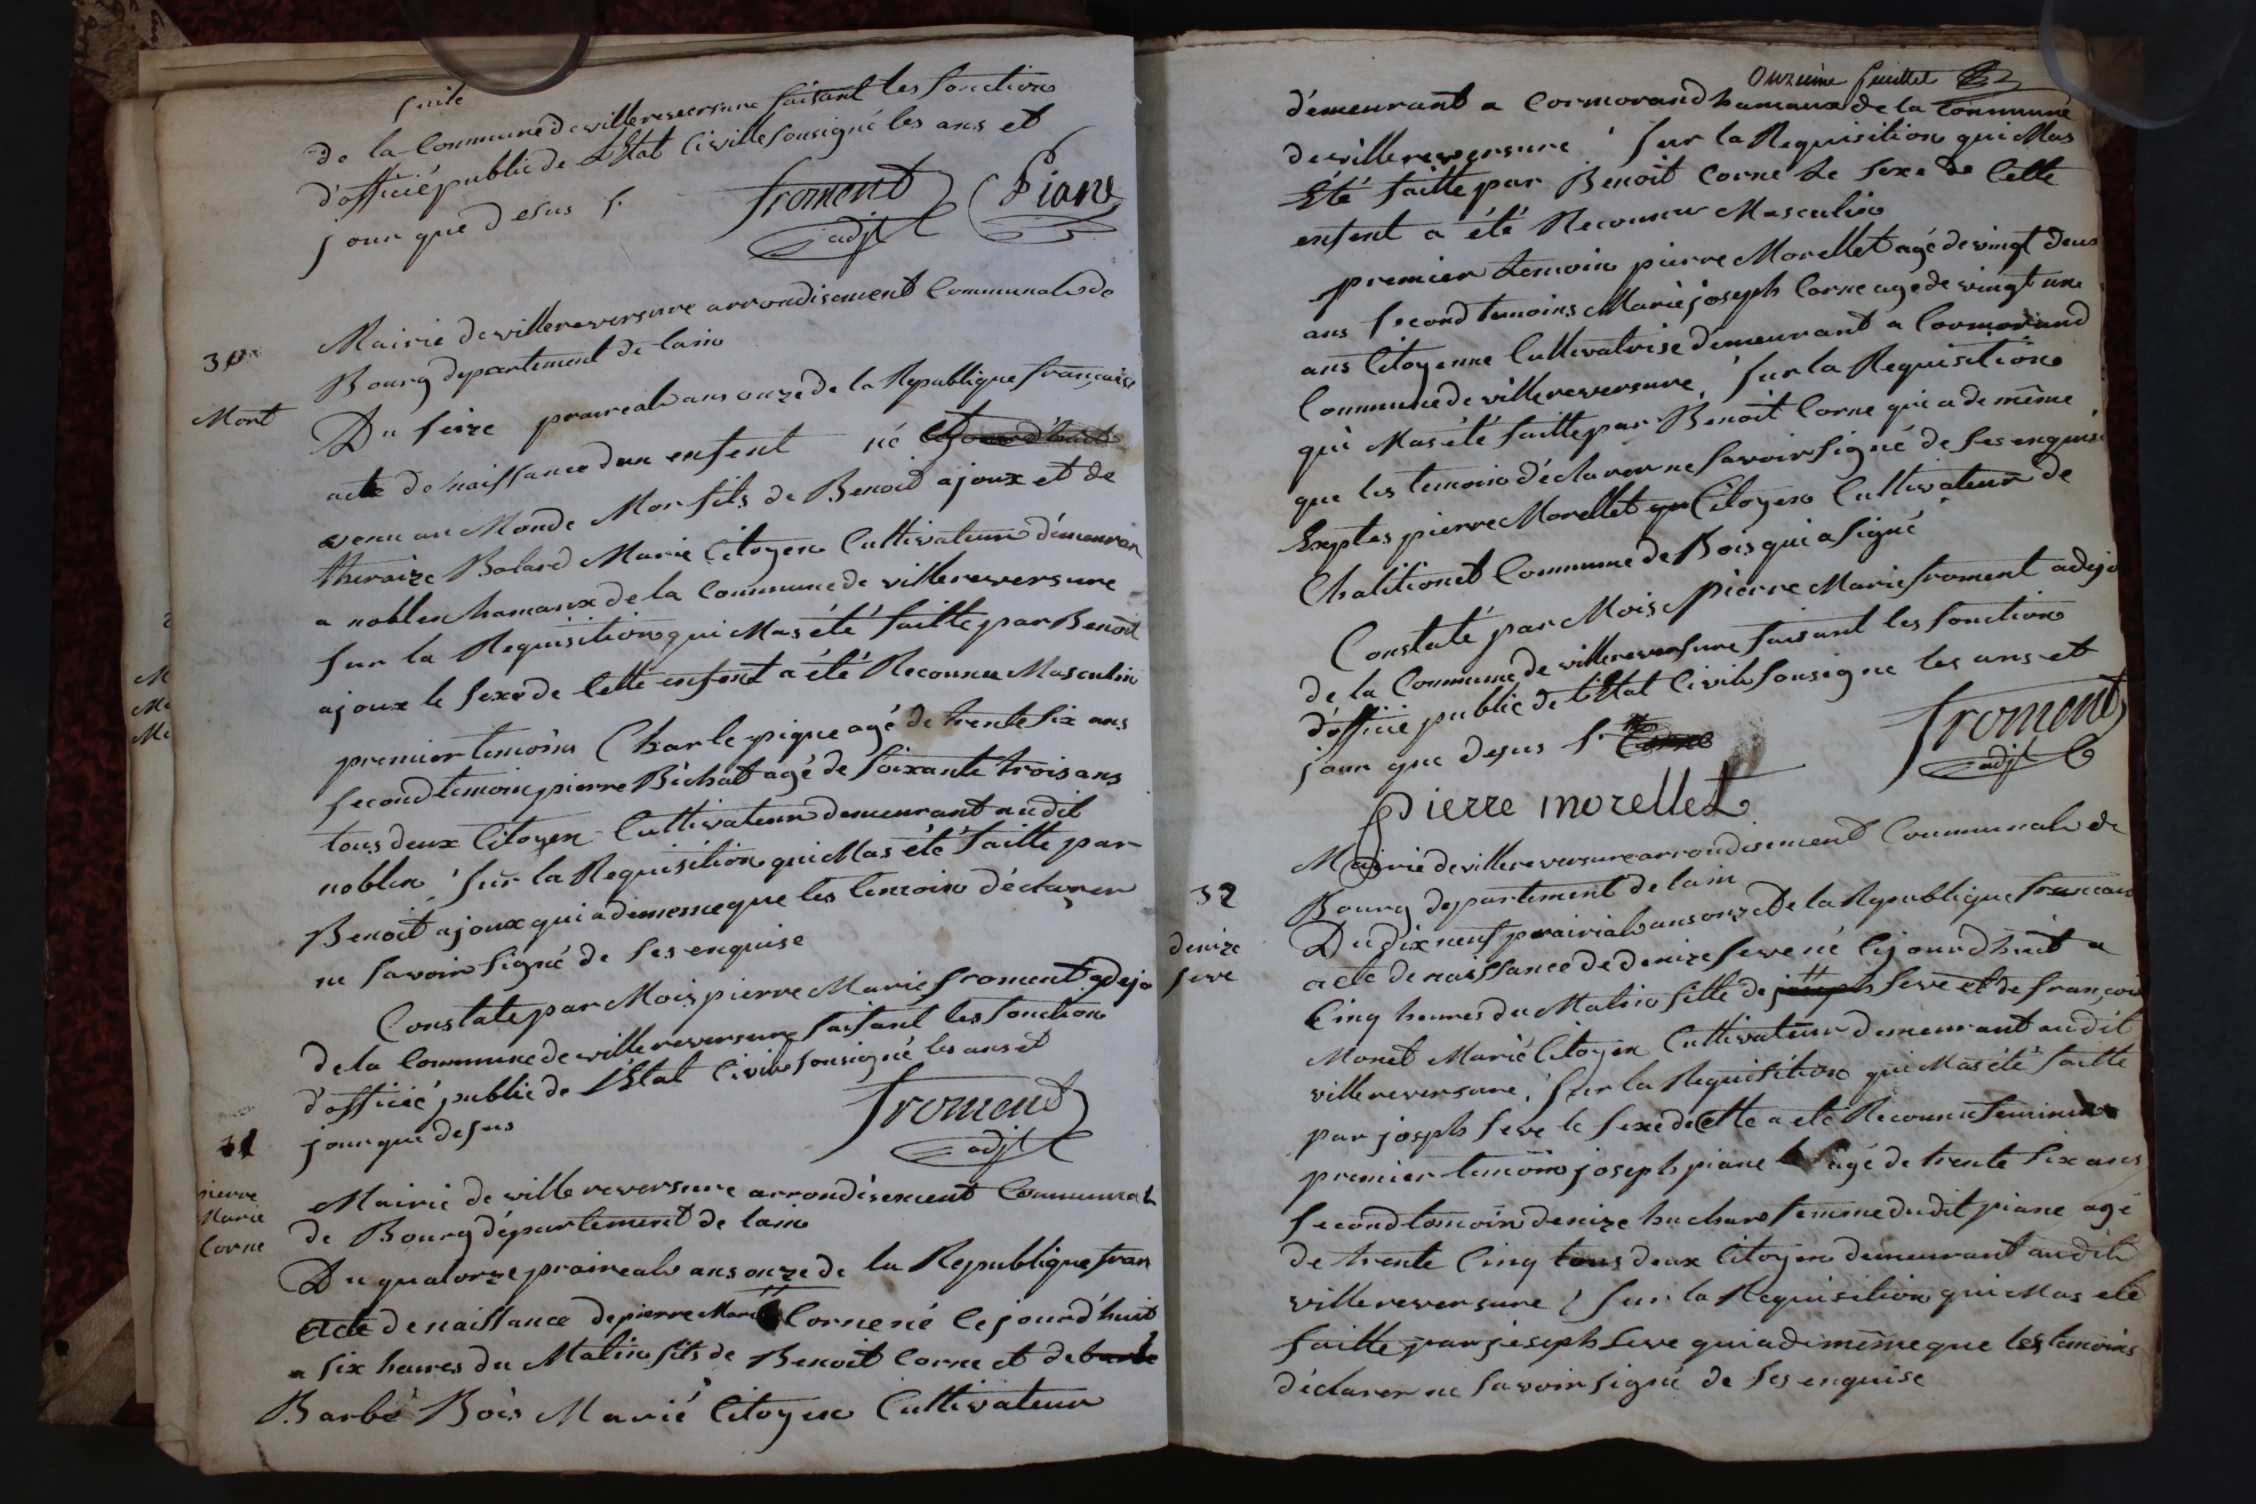 suite
de la Commune de villereversure faisant les fonction
d'officié public de LEtat Civille sousigné les ans et
jour que desus f.
froment
adjt
Piane
30
Mort
Mairie de villereversure arrondisement Communal de
Bourg departement de lain
Du seize praireal ans onze de la Republique française
acte de naissance dun enfent né
venu au Monde Mor fils de Benoit ajoux et de
theraize Balard Marie Citoyen Cultivateur démeuran
a noblen hamaux de la Commune de villereversure
sur la Requisition qui Mas été faitte par Benoit
ajoux le sexe de Cette enfent a été Reconnu Masculin
premier temoins Charle pique agé de trente six ans
second temoin pierre Béchat agé de soixante trois ans
tous deux Citoyen Cultivateur demeurant audit
noblen sur la Requisition qui Mas été faitte par
Benoit ajoux qui a de meme que les temoin déclarer
ne savoir signé de ses enquise
Constate par Mois pierre Marie froment adejo
de la Commune de villereversure faisant les fonction
d'officié public de LEtat Civil sousigné les ans et
jour que desus
froment
adjt
31
pierre
Marie
Corne
Mairie de villereversure arrondisement Communal
de Bourg département de lain
Du quatorze praireal ans onze de la Republique fran
acte de naissance de pierre Marie Corne né Cejourd'huit
a six heures du Matin fils de Benoit Corne et de barbe
Barbe Bois Marié Citoyen Cultivateur
Onzieme feuillet
démeurant a Cormorand hamaux de la Commune
de villereversure sur la Requisition qui Mas
Eté faitte par Benoit Corne Le sexe de Cette
enfent a été Reconnu Masculin
premier temoin pierre Morellet agé de vingt deux
ans second temoins Marie joseph Corne agé de vingt une
ans Citoyenne Cultivatrise demeurant a Cormorand
Commune de villereversure sur la Requisition
qui Mas été faitte par Benoit Corne qui a de même
que les temoin déclarer ne savoir signé de ses enquise
Exeptes pierre Morellet Citoyen Cultivateur de
Chalitionet Commune de Bois qui a signé
Constaté par Mois pierre Marie froment adejo
de la Commune de villereversure faisant les fonction
d'officié public de LEtat Civil sousigne les ans et
jour que desus f.
froment
adjt
pierre morellet
32
denize
seve
Mairie de villereversure arrondisement Communal de
Bourg departement de lain
Du dix neuf prairial ans onze De la Republique francais
acte de naissance de denize seve né Cejourdhuit a
Cinq heures du Matin fille de joseph seve et de françois
Monet Marié Citoyen Cultivateur demeurant audit
villereversure sur la Requisition qui Mas été faitte
par joseph seve le sexe de Cette a eté Reconnu feminin
premier temoin joseph piane agé de trente six ans
second temoin denize buchard femme dudit piane agé
de trente Cinq tous deux Citoyen demeurant audit
villereversure sur la Requisition qui Mas eté
faitte par joseph seve qui a de mème que les temoins
déclarer ne savoir signé de ses enquise